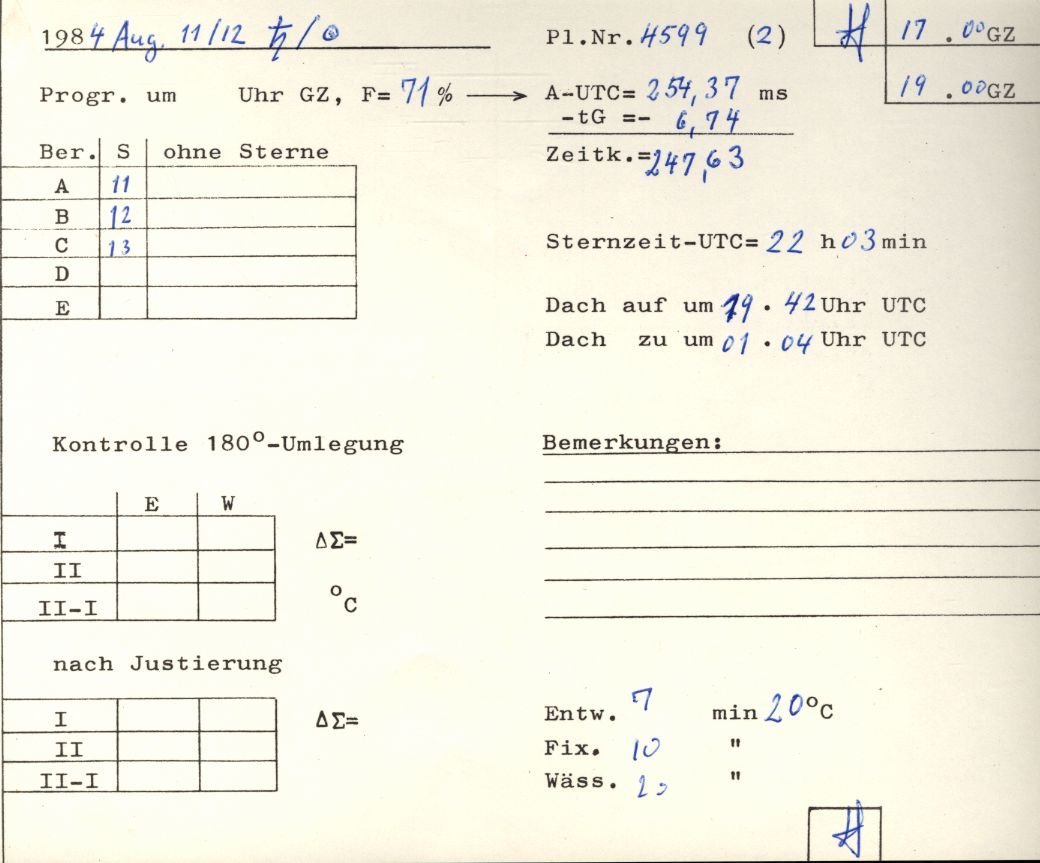 1984 Aug. 11/12 ♄/☉
Pl.Nr. 4599 (2)
17 .00GZ
19 .00GZ
Progr. um Uhr GZ, F= 71% → A-UTC= 254,37 ms
-tG =- 6,74
Zeitk.=247,63
Ber. S ohne Sterne
A 11
B 12
C 13
D
E
Sternzeit-UTC= 22 h 03 min
Dach auf um 19 . 42 Uhr UTC
Dach zu um 01 . 04 Uhr UTC
Kontrolle 180°-Umlegung
E W
I ΔΣ=
II
II-I °C
nach Justierung
I ΔΣ=
II
II-I
Bemerkungen:
Entw. 7 min 20°C
Fix. 10 "
Wäss. 20 "